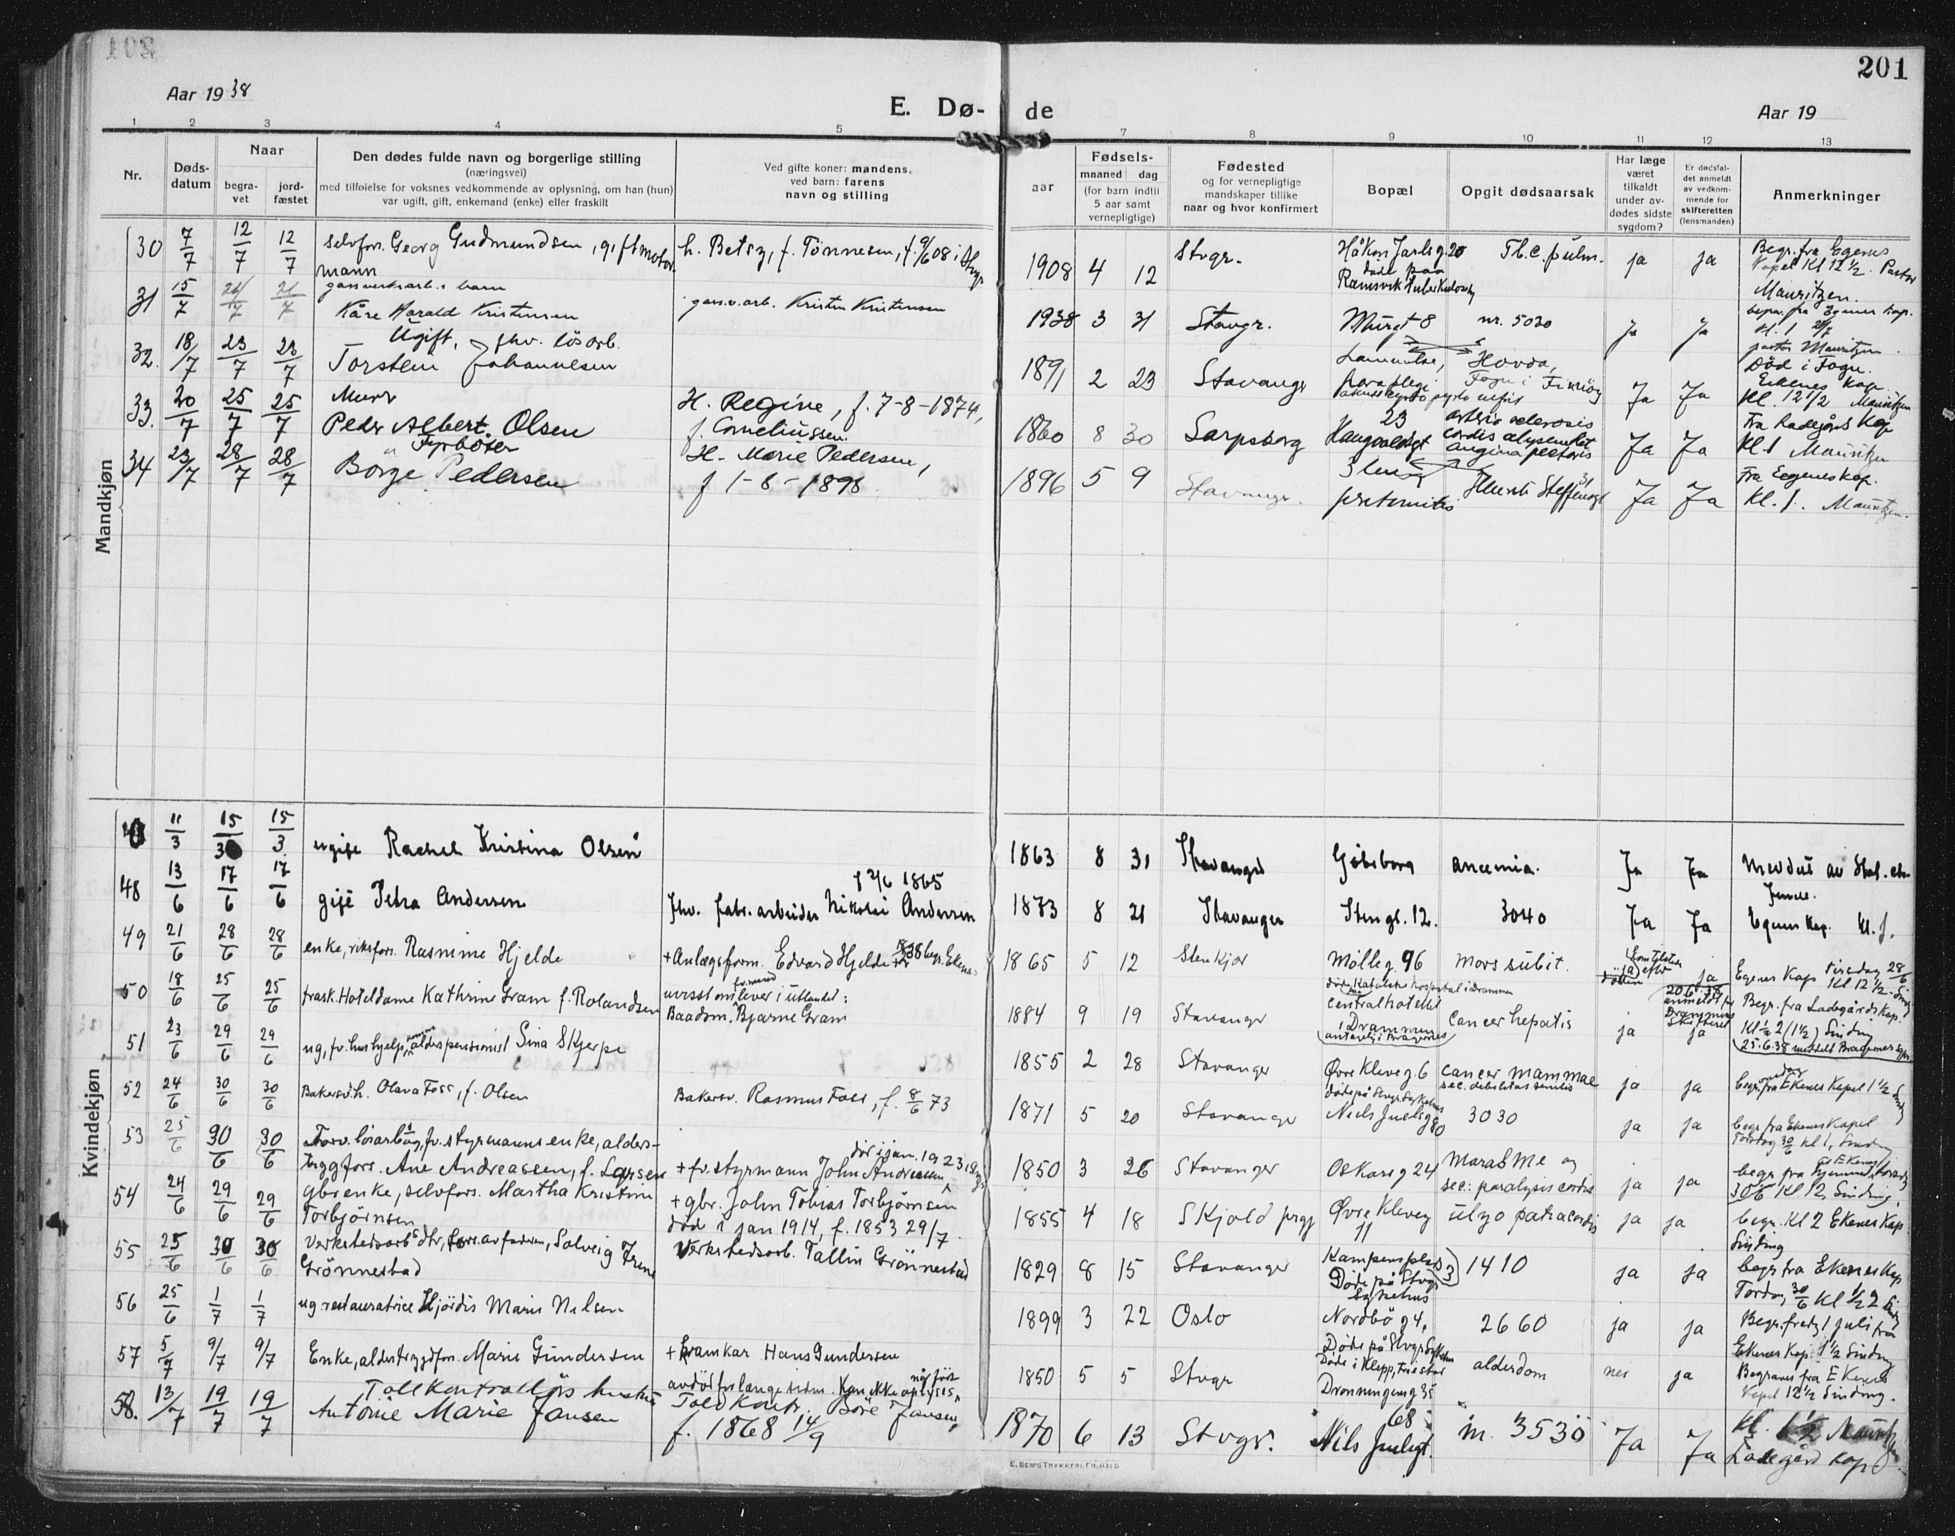 201
Aar 1938
E. Dø- de
Aar 19
1 2 3 4 5 7 8 9 10 11 12 13
Nr.
Døds-
datum
Naar
begra-
vet
jord-
fæstet
Den dødes fulde navn og borgerlige stilling
(næringsvei)
med tilføielse for voksnes vedkommende av oplysning, om han (hun)
var ugift, gift, enkemand (enke) eller fraskilt
Ved gifte koner: mandens,
ved barn: farens
navn og stilling
aar
Fødsels-
maaned dag
(for barn indtil
5 aar samt
vernepligtige)
Fødested
og for vernepligtige
mandskaper tillike
naar og hvor konfirmert
Bopæl
Opgit dødsaarsak
Har læge
været
tilkaldt
under av-
dødes sidste
sygdom?
Er dødsfal-
det anmeldt
av vedkom-
mende for
skifteretten
(lensmanden)
Anmerkninger
Mandkjøn
30 7/7 12/7 12/7 selvfors. Georg Gudmundsen, gift motor-
mann
h. Betsy, f. Tønnesen, f. 9/6 08 i Stvgr
1908 4 12 Stvgr. Håkon Jarlsg. 20
døde paa
Ramsvik Tuberkulosehj
Tb. c. pulm. ja ja Begr. fra Egenes
Kapel Kl 12 ½. Pastor
Mauritzen.
31 15/7 21/7 21/7 gassverksarb.s barn
Kåre Harald Kristensen
gassv.arb. Kristen Kristensen
1938 3 31 Stavgr. Murgt 8 nr. 5020 Ja Ja begr. fra Egenes Kap.
kl. 1 21/7
pastor Mauritzen.
32. 18/7 23/7 23/7 Ugift, fhv. løsarb.
Torstein Johannesen
1891 2 23 Stavanger Lammelse, Hovda,
paraplegi Fogn i Finnøy
Ja Ja Død i Fogn.
Eikenes Kap.
Kl. 12 1/2 Mauritzen
33. 20/7 25/7 25/7 Murer
Peder Albert Olsen
H. Regine, f. 7-8-1874,
f. Corneliussen.
1860 8 30 Sarpsborg Haugvaldsgt 23
arterio sclerosis
cordis
angina pectoris
Ja Ja Fra Ladegårds Kap
Kl. 1 Mauritzen
34 23/7 28/7 28/7 Fyrbøter
Børge Pedersen
H. Marie Pedersen,
f 1-6-1898
1896 5 9 Stavangr.
peritonitis Henrik Steffensgt 31
Ja Ja Fra Egenes kap.
Kl. 1. Mauritzen.
Kvindekjøn
11/3 15/3 15/3 ugift Rachel Kristina Olsen
1863 8 31 Stavanger Gøteborg anæmia. Ja Ja Meddelt av
48 13/6 17/6 17/6 gift Petra Andersen
f 2/6 1865
fhv. fabr. arbeider Nikolai Andersen
1873 8 21 Stavanger Steng. 12. 3040 Ja Ja Egenes Kap. kl. 1.
49 21/6 28/6 28/6 enke, riksfors. Rasmine Hjelde
+ Anlægsform. Edvard Hjelde
1865 5 12 Stenkjær Mølleg. 96 mors subit. ja efter
døden ja Egenes Kap tirsdag 28/6
Kl 12 ½. Sinding
50 18/6 25/6 25/6 frask. Hoteldame Kathrine Gram f. Rolandsen
uvisst om lever i utlandet:
Baadsm. Bjarne Gram
1884 9 19 Stavanger død Katolske hospital i Drammen
Centralhotellet
i Drammen
cancer hepatis ja ja 20.6.38
anmeldt for
Drammens
Skifteret
Begr. fra Ladegårds Kap.
Kl ½ 2 (1 ½) Sinding
25.6.38 meddelt Bragernes spr.
51 23/6 29/6 29/6 ug, fv. hushjelp, alderspensionist Sina Skjerpe
1855 2 28 Stavanger Øvre Kleveg 6 cancer mammae
sec. debilitas senilis ja ja
begr. fra Ekenes Kapel 1 ½ Sinding
52 24/6 30/6 30/6 Bakersv.h. Olava Foss, f. Olsen
Bakersv. Rasmus Foss, f. 8/6 73
1871 5 20 Stavanger døde på Stvgr. Sykehus
Niels Juelsg 80 3030 ja ja
begr. fra Ekenes Kapel
Torsdag 30/6 kl 1, Sinding
53 25/6 30/6 30/6 Forv. løsarb, fv. styrmanns enke, alders-
tryggfors. Ane Andreassen, f. Larsen
dør i jan. 1923 i Stvgr
+ fv. styrmann John Andreassen
1850 3 26 Stavanger Oskarsg 24 marasme og
sec: paralysis cordis ja ja
begr. fra hjemmet, torsdag
30/6 Kl 12, Sinding
54 24/6 29/6 29/6 gbr enke, selvfors. Martha Kristine
Torbjørnsen
+ gbr. John Tobias Torbjørnsen
død i jan 1914, f. 1853 29/7
1855 4 18 Skjold prgj Øvre Kleveg
11 ja ja begr. Kl 2 Ekenes Kap.
Sinding
55 25/6 30/6 30/6 Verkstedsarb's dtr, fors. av faderen, Solveig Irene
Grønnestad
Verkstedsarb. Tallin Grønnestad
1829 8 15 Stavanger Kampensplass 3
Døde på Stvgr
Sykehus
1410 ja ja begr. fra Ekenes Kap
Torsdag 30/6 Kl ½ 2 Sinding
56 25/6 1/7 1/7 ug. restauratrice Hjørdis Marie Nilsen
1899 3 22 Oslo Nordbøg 4,
Døde på Stvgr Sykehus
2660 ja ja Begr. fredag 1 juli fra
Ekenes Kap. 1 ½ Sinding
57 5/7 9/7 9/7 Enke, alderstrygdfors. Marie Gundersen
+ Bramkar Hans Gundersen
avdød for lange siden. Kan ikke oplyses når født
1850 5 5 Stvgr Døde i Klepp, Frøstad
Dronningeng 35
alderdom nei ja Begraves fra Ekenes
Kapel 12 ½ Sinding.
58. 13/7 19/7 19/7 Tollkontrollørs hustru
Antonie Marie Jansen
Toldkontr. Børe Jansen,
f. 1868 14/9
1870 6 13 Stvgr. Nils Juelsgt. 68
nr. 3530 Ja Ja Kl. 1 ½ Mauritzen
Ladegård Kap
E. BEM'S TRYKKERI, FR. HALD